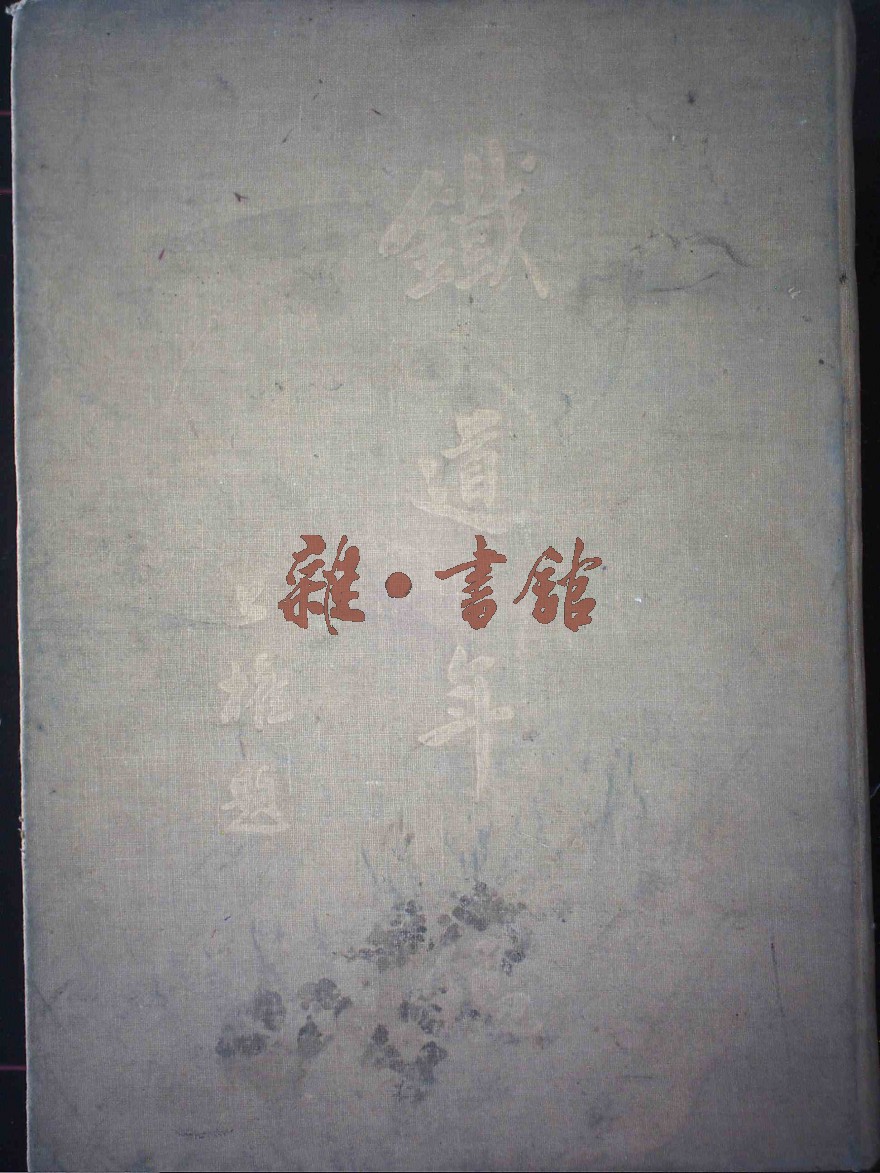 鐵道年
雄題
雜·書館